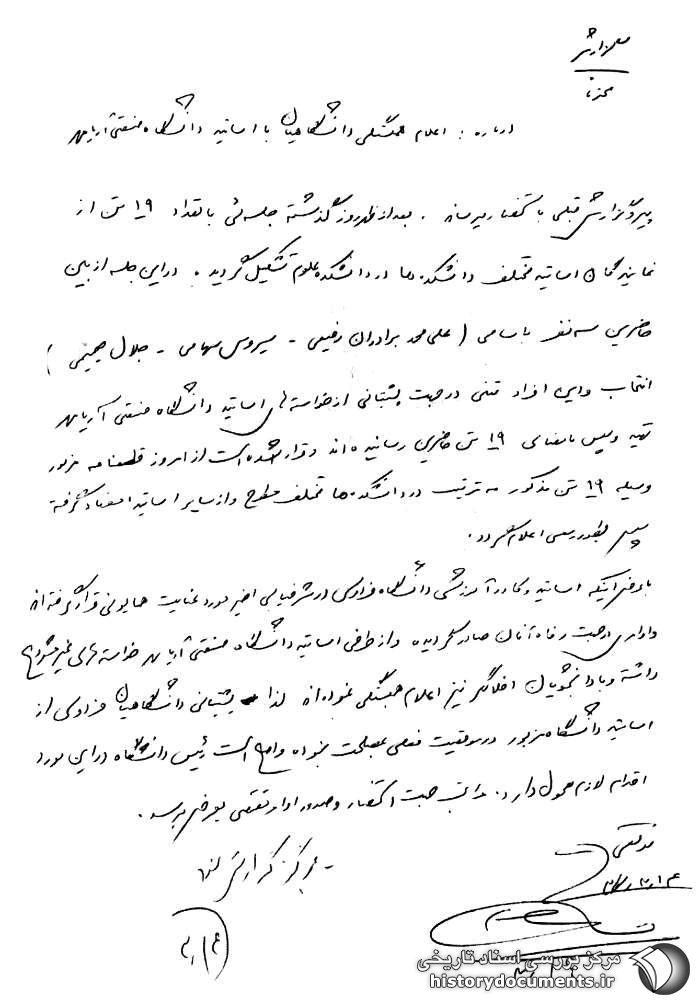 گزارش
محرمانه
درباره : اعلام همبستگی دانشگاهیان با اساتید دانشگاه صنعتی آریامهر
پیرو گزارش قبلی باستحضار میرساند . بعدازظهر روز گذشته جلسه‌ئی با تعداد ۱۹ تن از
نمایندگان اساتید مختلف دانشکده‌ها در دانشکده علوم تشکیل گردید . در این جلسه از بین
حاضرین سه نفر باسامی ( علی محمد برادران رفیعی - سیروس سهامی - جلال صمیمی )
انتخاب و این افراد متنی در جهت پشتبانی از خواسته‌های اساتید دانشگاه صنعتی آریامهر
تهیه و سپس بامضای ۱۹ تن حاضرین رسانیده‌اند و قرار شده است از امروز قطعنامه مزبور
وسیله ۱۹ تن مذکور به ترتیب در دانشکده‌ها مختلف مطرح و از سایر اساتید امضاء گرفته
سپس بطور رسمی اعلام گردد .
با عرض اینکه اساتید و کادر آموزشی دانشگاه فردوسی در شرفیابی اخیر مورد عنایت همایونی قرار گرفته‌اند
و اوامری در جهت رفاه آنان صادر گردیده و از طرفی اساتید دانشگاه صنعتی آریامهر خواسته‌های غیر مشروع
داشته و با دانشجویان اخلالگر نیز اعلام همبستگی نموده‌اند لذا پشتبانی دانشگاهیان فردوسی از
اساتید دانشگاه مزبور در موقعیت فعلی بمصلحت نبوده و اصلح است رئیس دانشگاه در این مورد
اقدام لازم معمول دارد . مراتب جهت استحضار و صدور اوامر مقتضی بعرض میرسد .
- بمرکز گزارش شود
مرکز بررسی اسناد تاریخی
historydocuments.ir